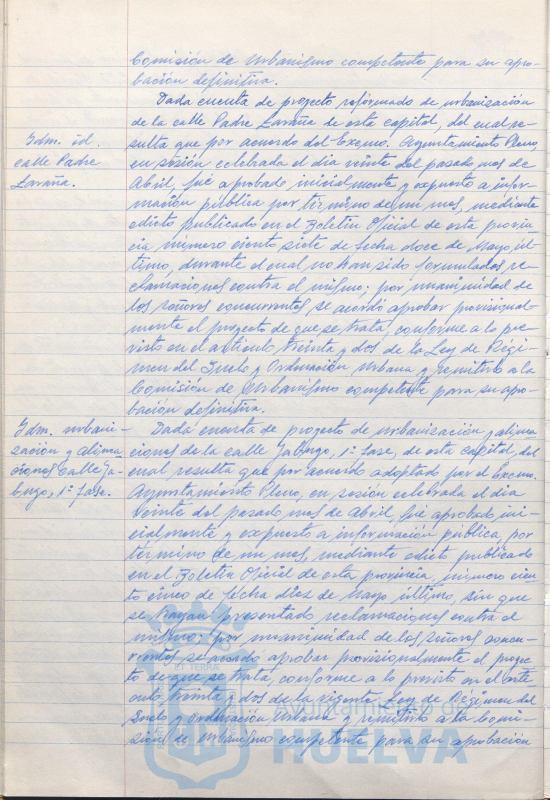 Comisión de Urbanismo competente para su apro-
bación definitiva.
Dada cuenta de proyecto reformado de urbanización
de la calle Padre Laraña de esta capital, del cual re-
Idm. id.
sulta que por acuerdo del Excmo. Ayuntamiento Pleno,
calle Padre
en sesión celebrada el día veinte del pasado mes de
Laraña.
Abril, fué aprobado inicialmente y expuesto a infor-
mación pública por término de un mes, mediante
edicto publicado en el Boletín Oficial de esta provin
cia número ciento siete de fecha doce de Mayo, úl-
timo, durante el cual no han sido formulados re-
clamaciones contra el mismo; por unanimidad de
los señores concurrentes se acordó aprobar provisional-
mente el proyecto de que se trata, conforme a lo pre-
visto en el artículo treinta y dos de la Ley de Régi-
men del Suelo y Ordenación Urbana y remitirlo a la
Comisión de Urbanismo competente para su apro-
bación definitiva.
Idm. urbani-
Dada cuenta de proyecto de urbanización y alinea
zación y alinea
ciones de la calle Jabugo, 1ª fase, de esta capital, del
ciones calle Ja-
cual resulta que por acuerdo adoptado por el Excmo.
bugo, 1ª fase.
Ayuntamiento Pleno, en sesión celebrada el día
veinte del pasado mes de Abril, fué aprobado ini-
cialmente y expuesto a información pública, por
término de un mes, mediante edicto publicado
en el Boletín Oficial de esta provincia, número cien
to cinco de fecha diez de Mayo último, sin que
se hayan presentado reclamaciones contra el
mismo; por unanimidad de los señores concu-
rrentes, se acordó aprobar provisionalmente el proyec
to de que se trata, conforme a lo previsto en el artí
culo treinta y dos de la vigente Ley de Régimen del
Suelo y Ordenación Urbana y remitirlo a la Comi-
sión de Urbanismo competente para su aprobación
Ayuntamiento de
HUELVA